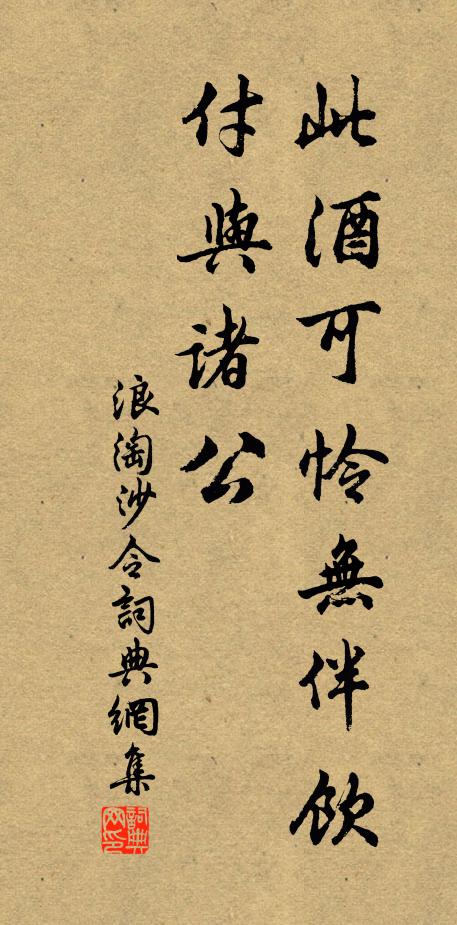 此酒可怜無伴飲
付與諸公
浪淘沙令詞典網集
詞典網印